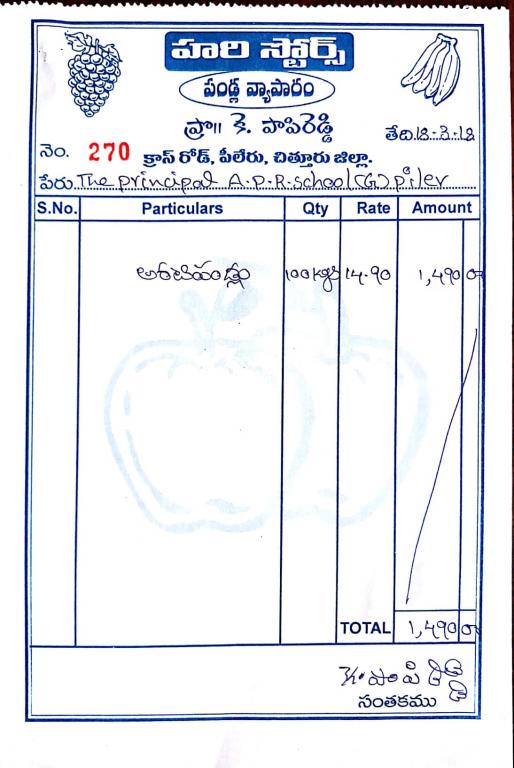 హరి స్టోర్స్
పండ్ల వ్యాపారం
ప్రొ॥ కె. పాపిరెడ్డి
తేది18-3-18
నెం. 270 క్రాస్ రోడ్, పీలేరు, చిత్తూరు జిల్లా.
పేరు The principal A.P.R.school(G) piler
S.No. Particulars Qty Rate Amount
అరటిపండ్లు 100kgs 14.90 1,490 00
TOTAL 1,490 00
కె. పాపిరెడ్డి
సంతకము